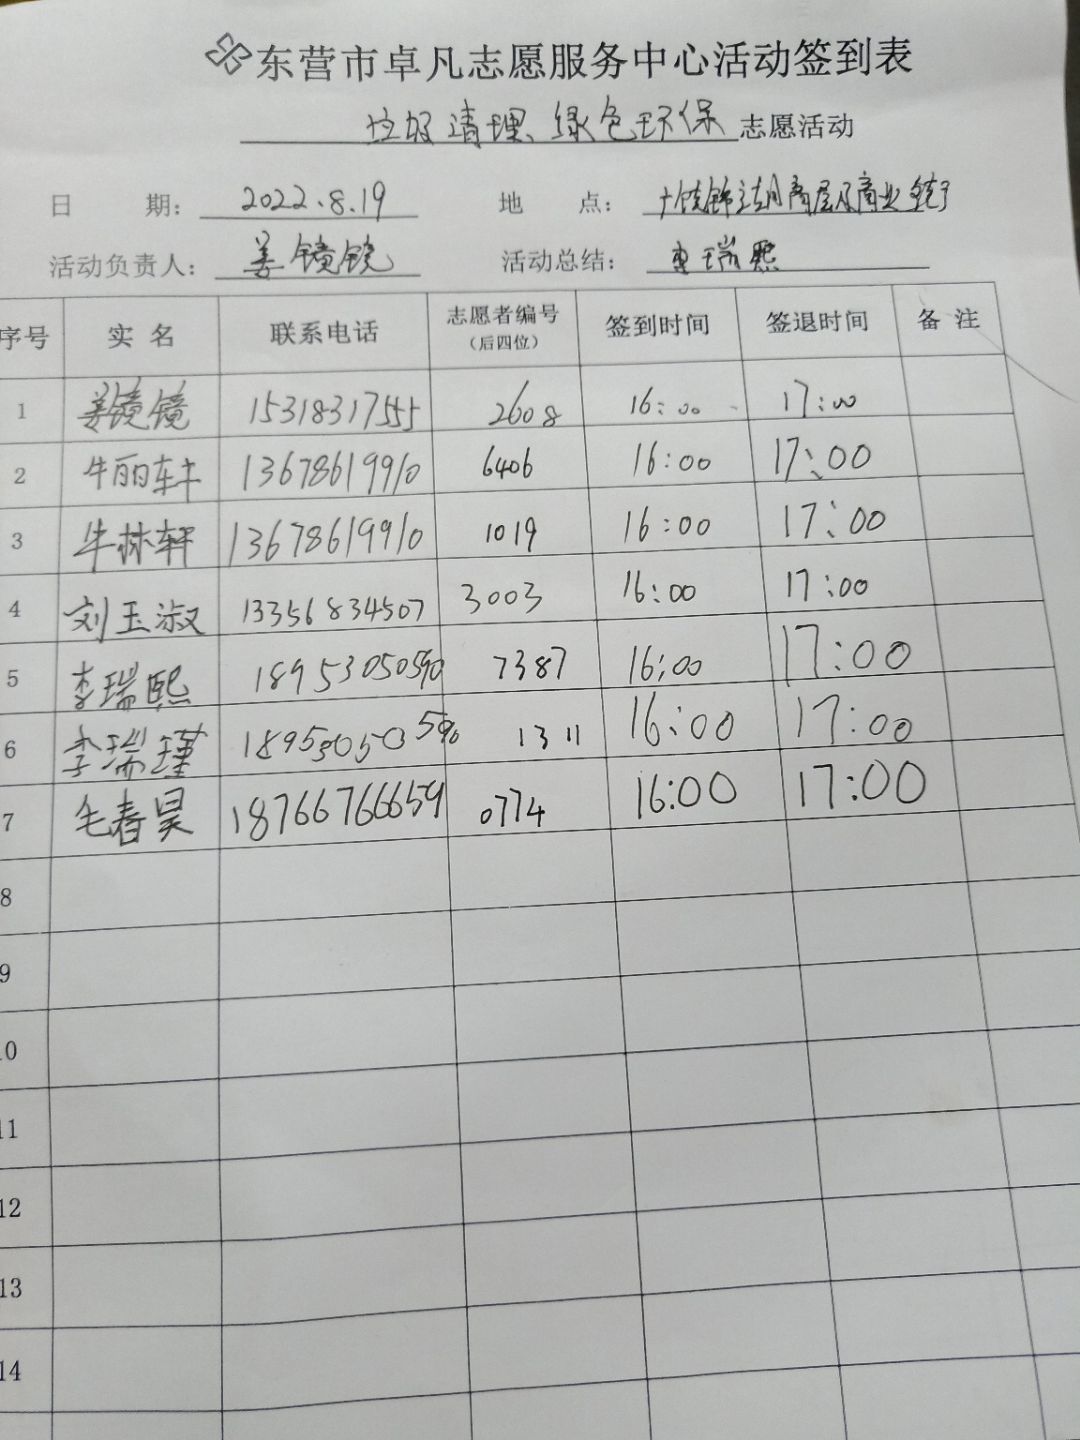 东营市卓凡志愿服务中心活动签到表
垃圾清理、绿色环保 志愿活动
日 期: 2022.8.19 地 点: 商业
活动负责人: 姜镜镜 活动总结: 李瑞熙
序号 实 名 联系电话 志愿者编号 (后四位) 签到时间 签退时间 备 注
1 姜镜镜 15318317555 2608 16:00 17:00
2 牛丽轩 13678619910 6406 16:00 17:00
3 牛林轩 13678619910 1019 16:00 17:00
4 刘玉淑 13356834507 3003 16:00 17:00
5 李瑞熙 18953050590 7387 16:00 17:00
6 李瑞瑾 18953050590 1311 16:00 17:00
7 毛春昊 18766766659 0774 16:00 17:00
8
9
10
11
12
13
14